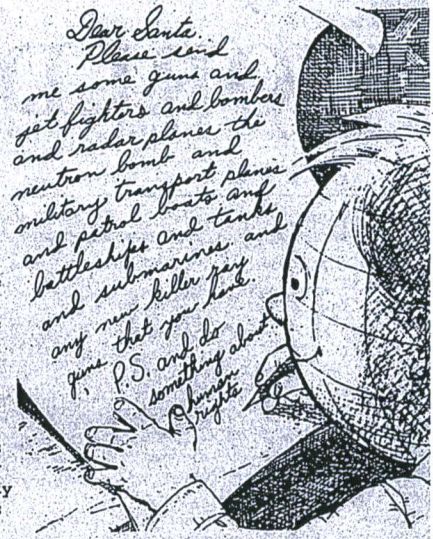 Dear Santa.
Please send
me some guns and
jet fighters and bombers
and radar planes the
neutron bomb and
military transport planes
and patrol boats and
battleships and tanks
and submarines and
any new killer ray
guns that you have.
P.S. and do
something about
human
rights